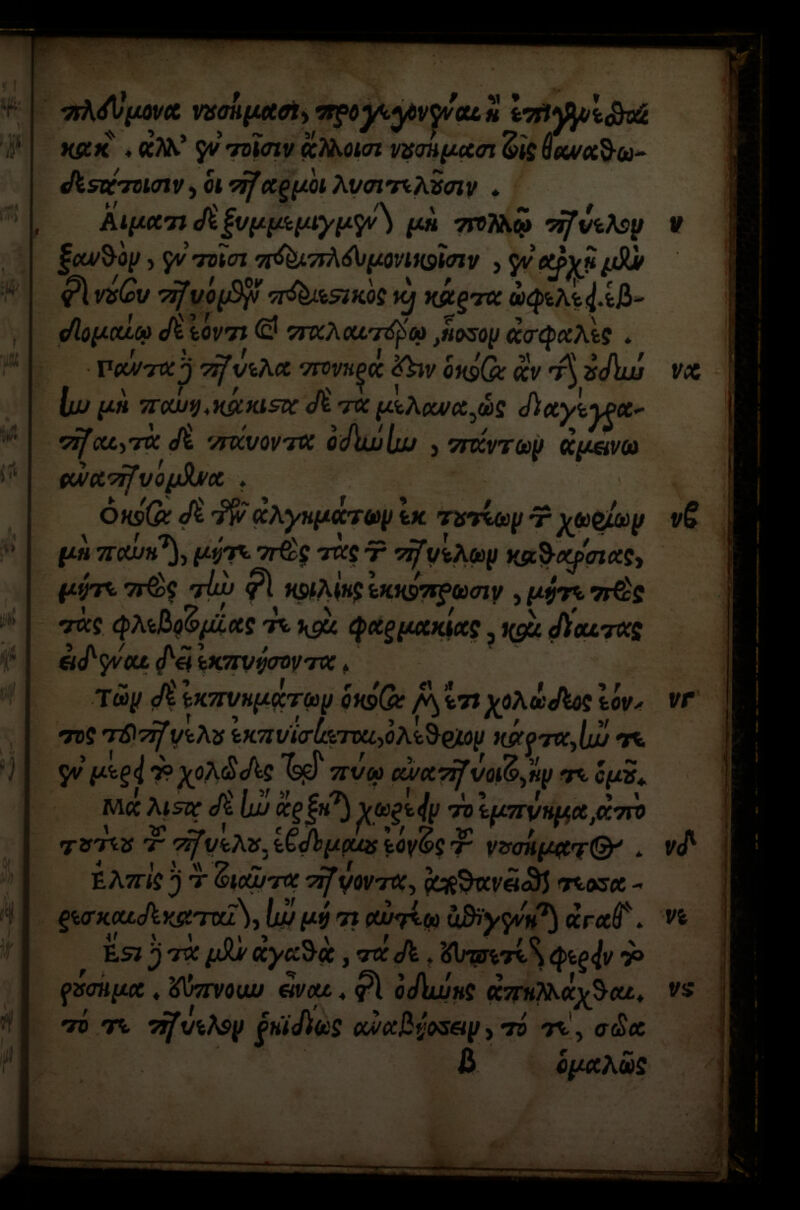 πλεύμονα νουσήμασι, προγεγονέναι ἢ ἐπιγενέσθαι
κακὸν. ἀλλ' ἐν τοῖσιν ἄλλοισι νουσήμασι τοῖς θανατω-
δεστάτοισιν, οἱ πταρμοὶ λυσιτελοῦσιν.
Αἵματι δὲ ξυμμεμιγμένον μὴ πολλῷ πτύελον ν
ξανθὸν, ἐν τοῖσι περιπλευμονικοῖσιν, ἐν ἀρχῇ μὲν
τῆς νούσου πτυόμενον περιεστικὸς καὶ κάρτα ὠφελέει. ἑβ-
δομαίῳ δὲ ἐόντι ἢ παλαιοτέρῳ, ἧσσον ἀσφαλὲς.
Πάντα δὲ πτύελα πονηρά ἐστιν ὁκόσα ἂν τὴν ὀδύ να
νην μὴ παύῃ. κάκιστα δὲ τὰ μέλανα, ὡς διαγέγρα-
πται, τὰ δὲ παύοντα ὀδύνην, πάντων ἀμείνω
ἀναπτυόμενα.
Ὁκόσα δὲ τῶν ἀλγημάτων ἐκ τουτέων τῶν χωρίων νβ
μὴ παύηται, μήτε πρὸς τὰς τῶν πτυέλων καθάρσιας,
μήτε πρὸς τὴν τῆς κοιλίης ἐκκόπρωσιν, μήτε πρὸς
τὰς φλεβοτομίας τε καὶ φαρμακίας, καὶ διαίτας
εἰδέναι δεῖ ἐκπυήσοντα.
Τῶν δὲ ἐκπυημάτων ὁκόσα μὲν ἔτι χολώδεος ἐόν- νγ
τος τοῦ πτυέλου ἐκπυΐσκεται, ὀλέθριον κάρτα, ἤν τε
ἐν μέρει τὸ χολῶδες τῷ πύῳ ἀναπτύοιτο, ἤν τε ὁμοῦ.
Μάλιστα δὲ ἢν ἄρξηται χωρέειν τὸ ἐμπύημα, ἀπὸ
τουτέου τοῦ πτυέλου, ἑβδομαίου ἐόντος τοῦ νουσήματος. νδ
Ἐλπὶς δὲ τὸν τοιαῦτα πτύοντα, ἀποθανεῖσθαι τεσσα-
ρεσκαιδεκαταῖον, ἢν μή τι αὐτέῳ ἐπιγένηται ἀγαθὸν. νε
Ἔστι δὲ τὰ μὲν ἀγαθὰ, τάδε. εὐπετέως φέρειν τὸ
νούσημα, εὔπνουν εἶναι, τῆς ὀδύνης ἀπηλλάχθαι, νς
τό τε πτύελον ῥηϊδίως ἀναβήσσειν, τό τε, σῶμα
β ὁμαλῶς